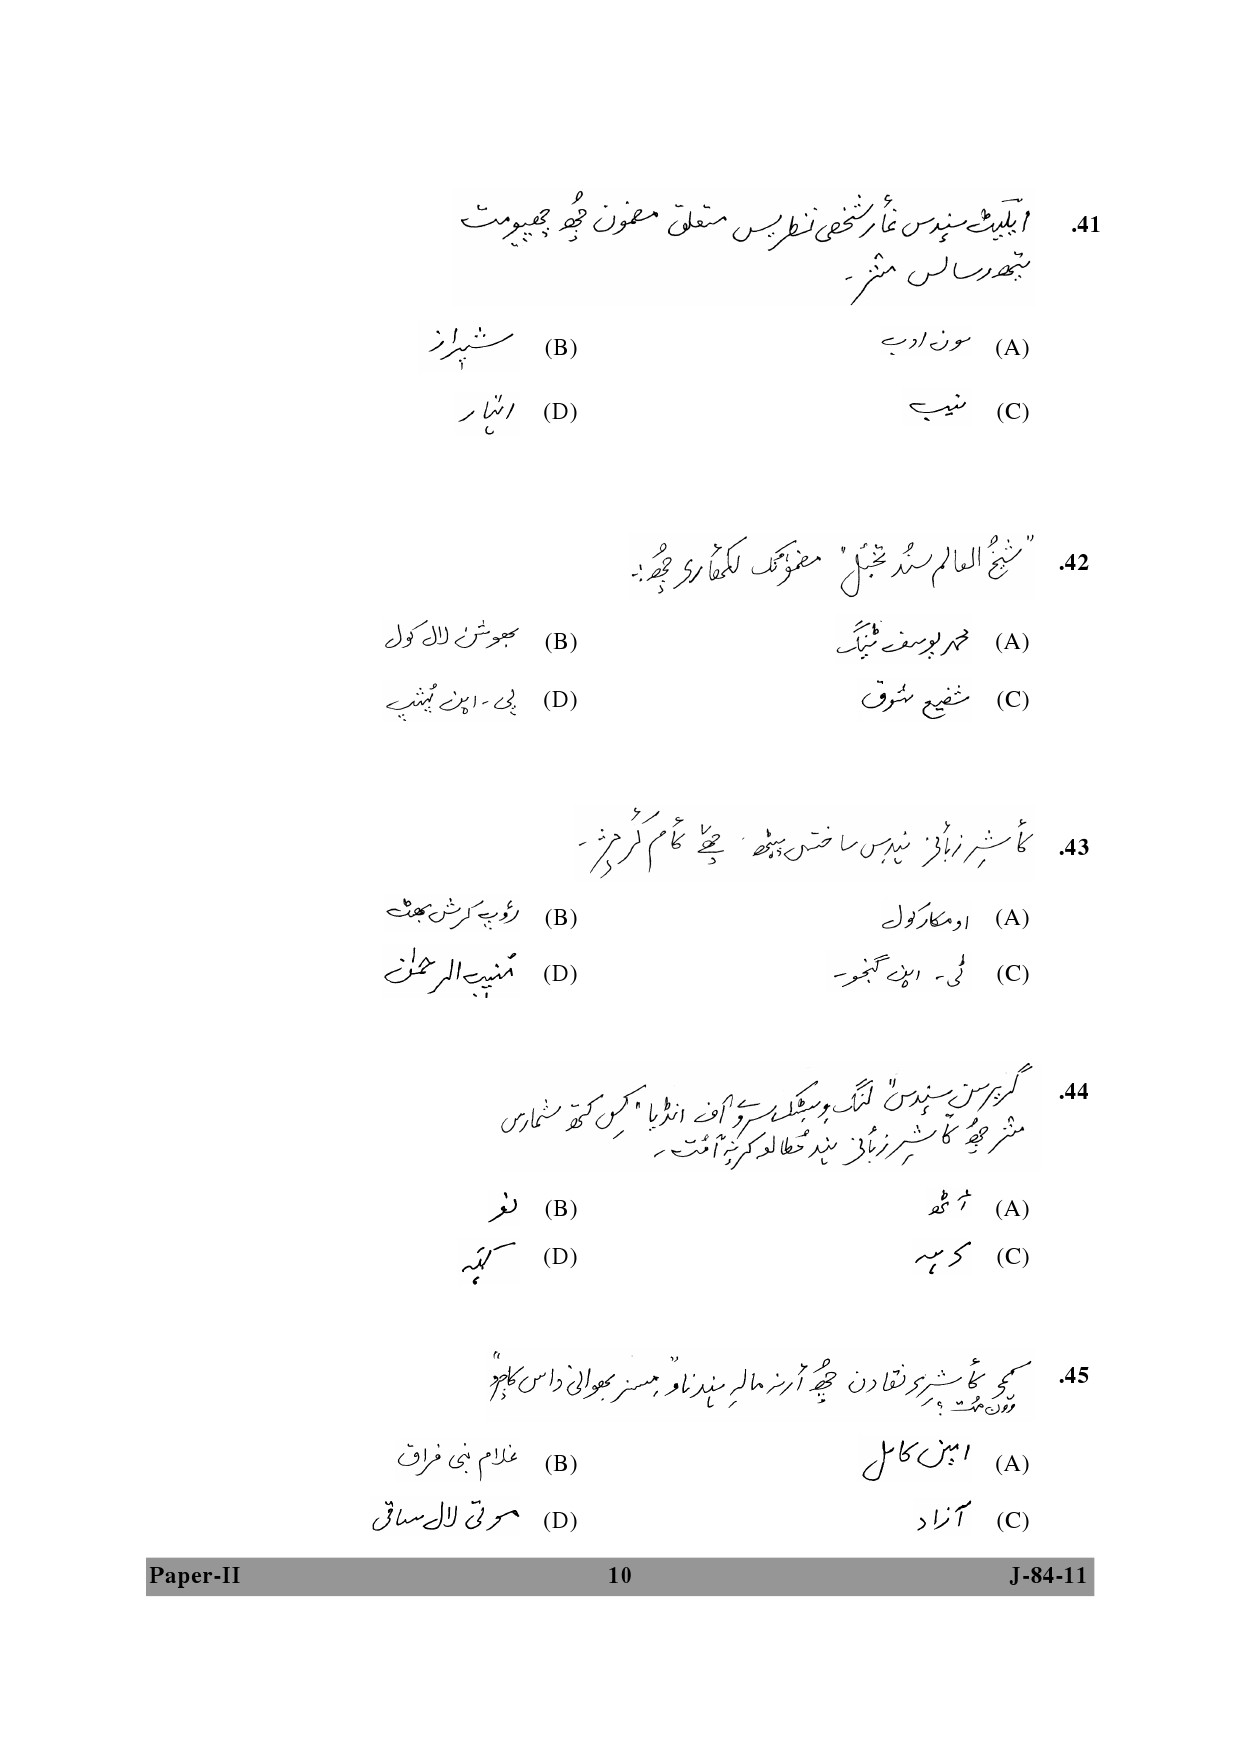 41. ایلیٹ سٕنٛدِس غٲر شخصی نظریس متعلق مضمون چھُ چھپیومت
یتھ رسالس منز ۔
(A) سون ادب (B) شیراز
(C) نیب (D) انہار
42. "شیخُ العالم سُنٛد تخیُل" مضمونُک لکھٲری چھُ :۔
(A) محمد یوسف ٹینگ (B) بھوشن لال کول
(C) شفیع شوق (D) پی ۔ این پُشپ
43. کٲشِر زبٲنی ہنٛدِس ساختس پیٹھ چھےٚ کٲم کٔرمٕژ ۔
(A) اومکار کول (B) روٗپ کرشن بھٹ
(C) ٹی ۔ این گنجو ۔ (D) مُنیب الرحمٰن
44. گریرسن سٕنٛدِس "لنگویسٹک سروے آف انڈیا" کِس کتھ شمارس
منز چھُ کٲشِر زبٲنی ہنٛد مُطالعہ کرنہٕ آمُت ۔
(A) آٹھ (B) نو
(C) دٔہہ (D) کہہ
45. کٔمی کٲشِری نقادن چھُ أرنہ مالہِ ہنٛد ناو "مِسز بھوانی داس کاچرو"
ووٚن مُت ؟
(A) امین کامل (B) غلام نبی فراق
(C) آزاد (D) موتی لال ساقی
Paper-II 10 J-84-11